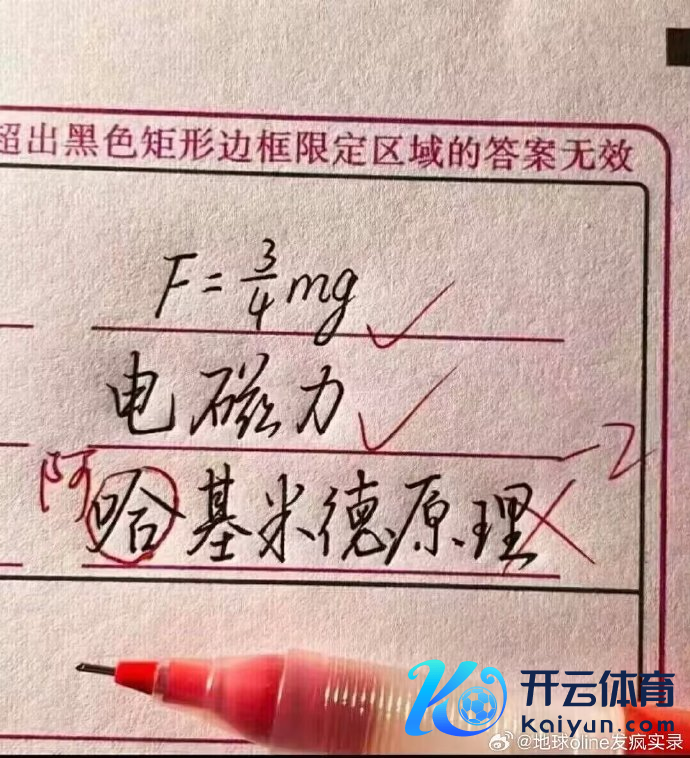 超出黑色矩形边框限定区域的答案无效
F = 3/4 mg
电磁力
-2
阿
哈基米德原理
开云体育
Kaiyun.com
@地球oline发疯实录